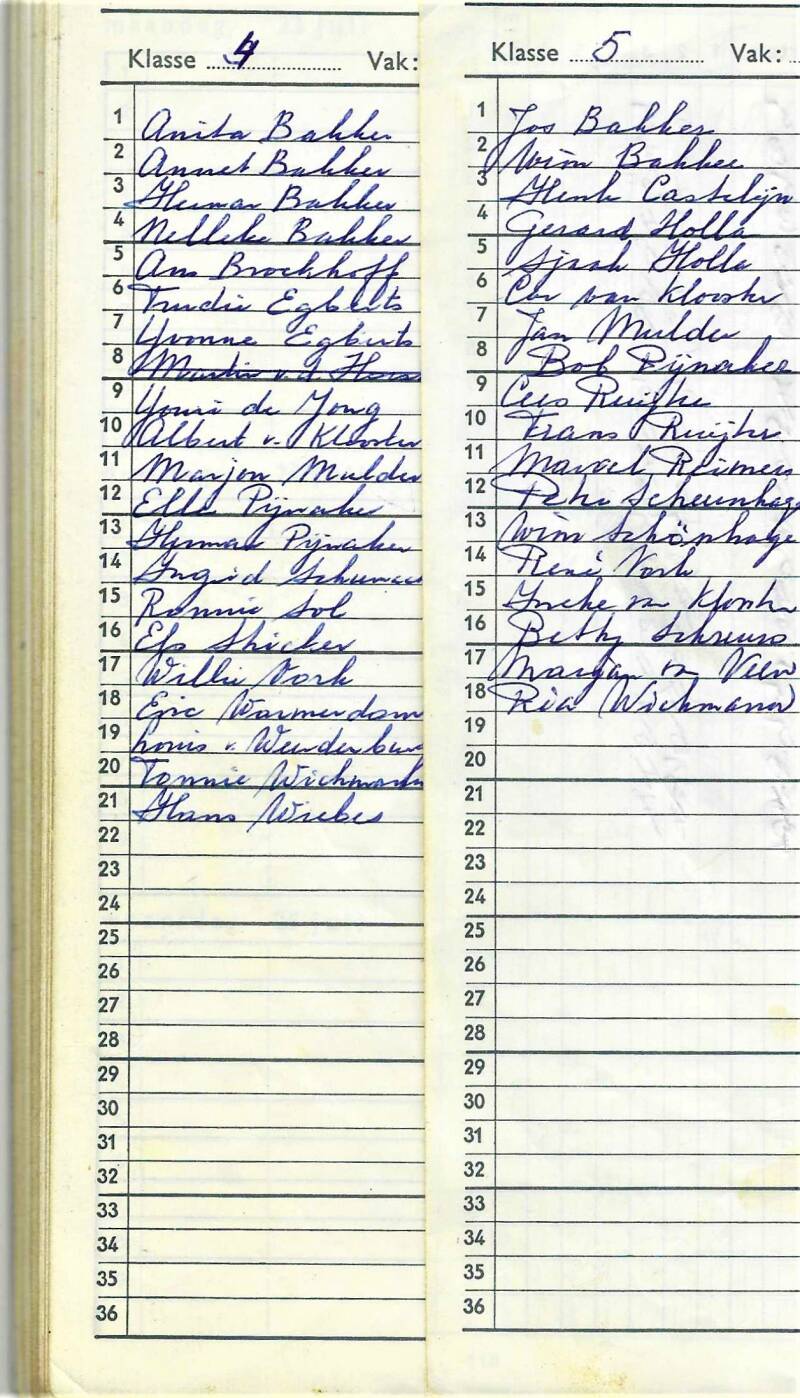 Klasse 4 Vak:
1 Anita Bakker
2 Annet Bakker
3 Herman Bakker
4 Nelleke Bakker
5 Ans Brockhoff
6 Trudie Egberts
7 Yvonne Egberts
8 Martin v. d. Horst
9 Youri de Jong
10 Albert v. Klooster
11 Marjon Mulder
12 Ella Pijnaker
13 Herman Pijnaker
14 Ingrid
15 Ronnie Sol
16 Stricker
17 Willie Vork
18 Eric Warmerdam
19 Louis v.
20 Tonnie
21 Hans Wiebes
22
23
24
25
26
27
28
29
30
31
32
33
34
35
36
Klasse 5 Vak:
1 Jos Bakker
2 Wim Bakker
3 Henk Castelijn
4 Gerard Holla
5 Sjrah Holla
6 Cor van Klooster
7 Jan Mulder
8 Bob Pijnaker
9 Cees Ruijter
10 Frans Ruijter
11 Marcel Reimers
12 Scheunhage
13 Wim Schönhage
14 René Vork
15 Ineke van Klooster
16 Betty Schreurs
17 Marjan v. Veen
18 Ria Wichmann
19
20
21
22
23
24
25
26
27
28
29
30
31
32
33
34
35
36